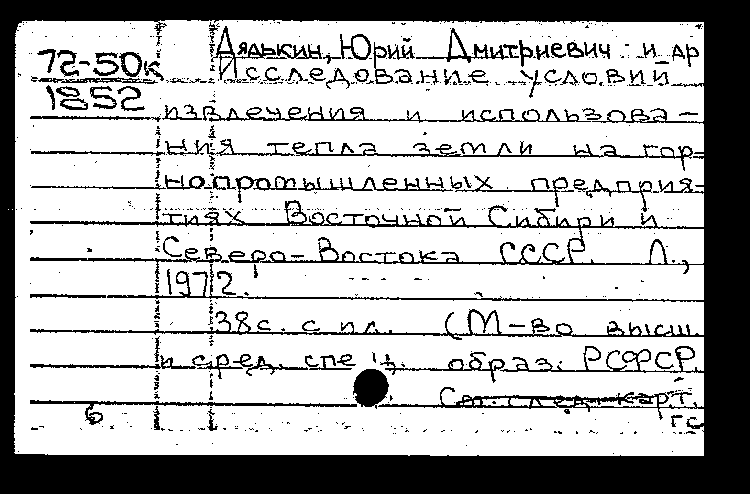 72-50к
1852
Дядькин, Юрий Дмитриевич и др
Исследование условий
извлечения и использова-
ния тепла земли на гор-
нопромышленных предприя-
тиях Восточной Сибири и
Северо-Востока СССР. Л.,
1972.
38с. с ил. (М-во высш.
и сред. спец. образ. РСФСР.
См. след. карт.
6
гс